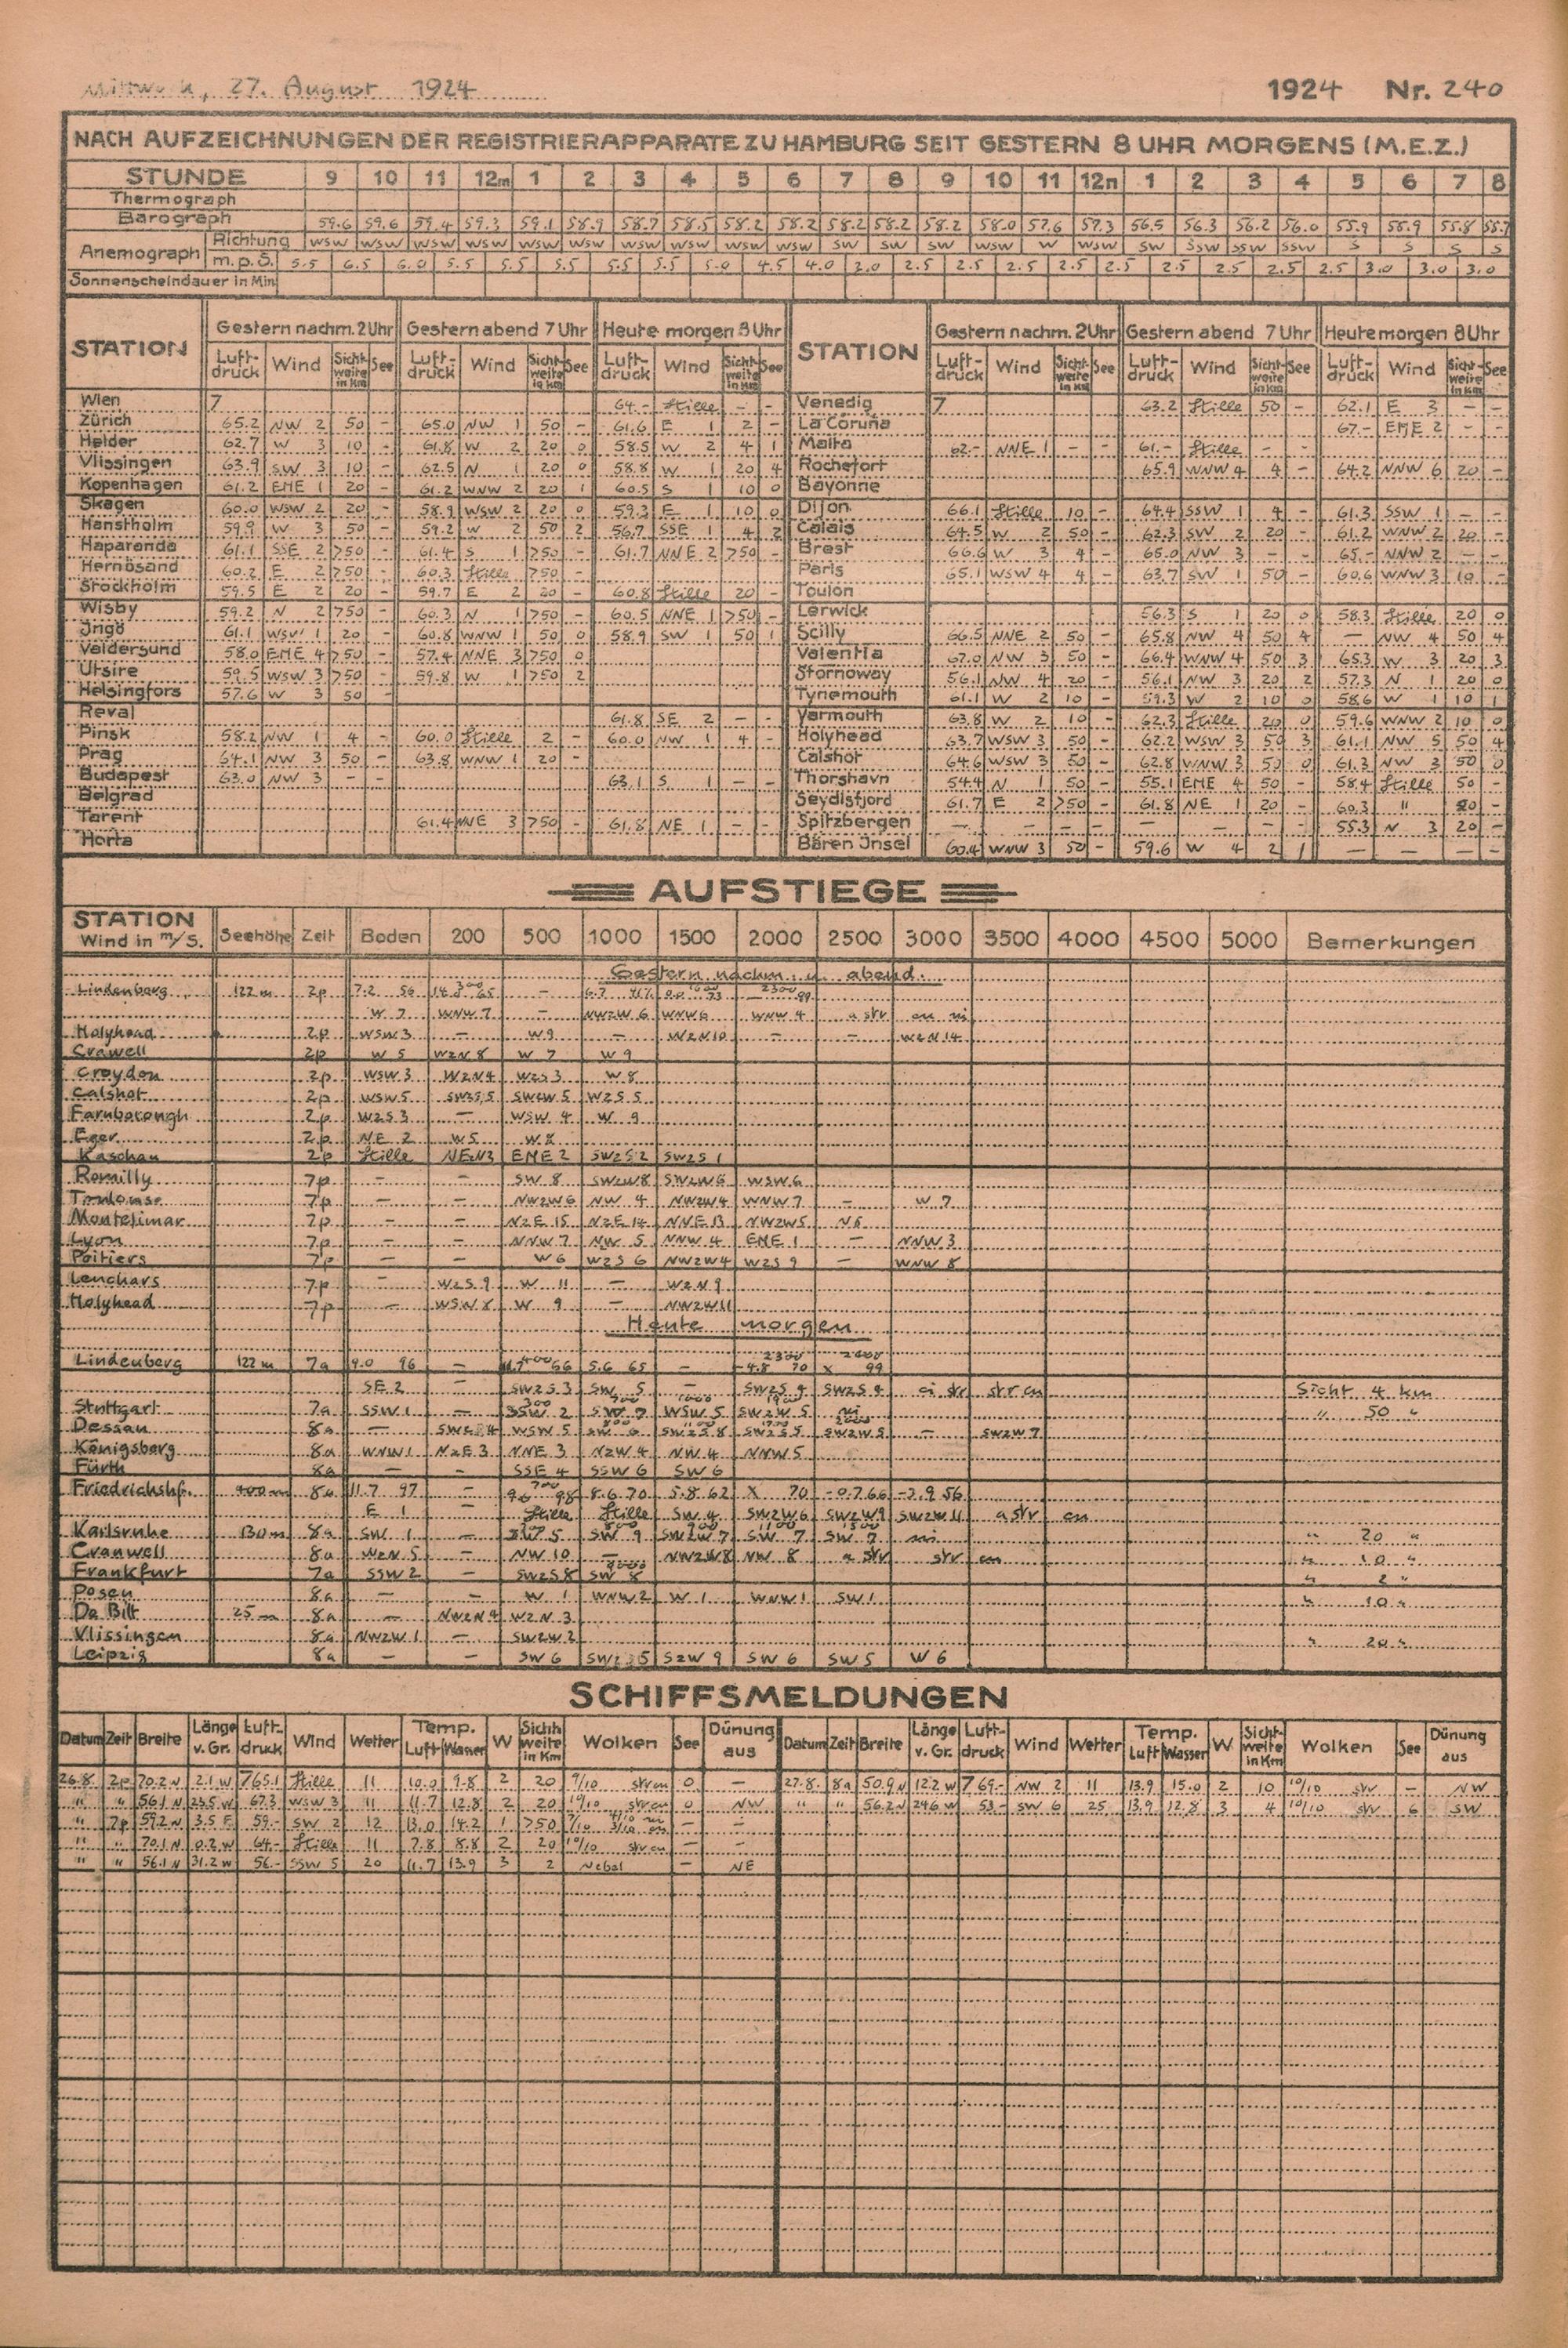 Mittwoch, 27. August 1924 1924 Nr. 240
NACH AUFZEICHNUNGEN DER REGISTRIERAPPARATE ZU HAMBURG SEIT GESTERN 8 UHR MORGENS (M.E.Z.)
STUNDE 9 10 11 12m 1 2 3 4 5 6 7 8 9 10 11 12n 1 2 3 4 5 6 7 8
Thermograph
Barograph 59.6 59.6 59.4 59.3 59.1 58.9 58.7 58.5 58.2 58.2 58.2 58.2 58.2 58.0 57.6 57.3 56.5 56.3 56.2 56.0 55.9 55.9 55.8 55.7
Anemograph Richtung WSW WSW WSW WSW WSW WSW WSW WSW WSW WSW SW SW SW WSW W WSW SW SSW SSW SSW S S S S
m.p.S. 5.5 6.5 6.0 5.5 5.5 5.5 5.5 5.5 5.0 4.5 4.0 3.0 2.5 2.5 2.5 2.5 2.5 2.5 2.5 2.5 2.5 3.0 3.0 3.0
Sonnenscheindauer in Min
STATION Gestern nachm. 2 Uhr Gestern abend 7 Uhr Heute morgen 8 Uhr STATION Gestern nachm. 2 Uhr Gestern abend 7 Uhr Heute morgen 8 Uhr
Luft-druck Wind Sicht-weite in Km See Luft-druck Wind Sicht-weite in Km See Luft-druck Wind Sicht-weite in Km See Luft-druck Wind Sicht-weite in Km See Luft-druck Wind Sicht-weite in Km See Luft-druck Wind Sicht-weite in Km See
Wien 7 64.- Stille - - Venedig 7 63.2 Stille 50 - 62.1 E 3 - -
Zürich 65.2 NW 2 50 - 65.0 NW 1 50 - 61.6 E 1 2 - La Coruña 67.- ENE 2 - -
Helder 62.7 W 3 10 - 61.8 W 2 20 0 58.5 W 2 4 1 Malta 62.- NNE 1 - - 61.- Stille - -
Vlissingen 63.9 SW 3 10 - 62.5 N 1 20 0 58.8 W 1 20 4 Rochefort 65.9 WNW 4 4 - 64.2 NNW 6 20 -
Kopenhagen 61.2 ENE 1 20 - 61.2 WNW 2 20 1 60.5 S 1 10 0 Bayonne
Skagen 60.0 WSW 2 20 - 58.9 WSW 2 20 0 59.3 E 1 10 0 Dijon 66.1 Stille 10 - 64.4 SSW 1 4 - 61.3 SSW 1 - -
Hanstholm 59.9 W 3 50 - 59.2 W 2 50 2 56.7 SSE 1 4 2 Calais 64.5 W 2 50 - 62.3 SW 2 20 - 61.2 WNW 2 20 -
Haparanda 61.1 SSE 2 >50 - 61.4 S 1 >50 - 61.7 NNE 2 >50 - Brest 66.6 W 3 4 - 65.0 NW 3 - - 65.- NNW 2 - -
Hernösand 60.2 E 2 >50 - 60.3 Stille >50 - Paris 65.1 WSW 4 4 - 63.7 SW 1 50 - 60.6 WNW 3 10 -
Stockholm 59.5 E 2 20 - 59.7 E 2 20 - 60.8 Stille 20 - Toulon
Wisby 59.2 N 2 >50 - 60.3 N 1 >50 - 60.5 NNE 1 >50 - Lerwick 56.3 S 1 20 0 58.3 Stille 20 0
Ingö 61.1 WSW 1 20 - 60.8 WNW 1 50 0 58.9 SW 1 50 1 Scilly 66.5 NNE 2 50 - 65.8 NW 4 50 4 - NW 4 50 4
Valdersund 58.0 ENE 4 >50 - 57.4 NNE 3 >50 0 Valentia 67.0 NW 3 50 - 66.4 WNW 4 50 3 65.3 W 3 20 3
Utsire 59.5 WSW 3 >50 - 59.8 W 1 >50 2 Stornoway 56.1 NW 4 20 - 56.1 NW 3 20 2 57.3 N 1 20 0
Helsingfors 57.6 W 3 50 - Tynemouth 61.1 W 2 10 - 59.3 W 2 10 0 58.6 W 1 10 1
Reval 61.8 SE 2 - - Yarmouth 63.8 W 2 10 - 62.3 Stille 20 0 59.6 WNW 2 10 0
Pinsk 58.2 NW 1 4 - 60.0 Stille 2 - 60.0 NW 1 4 - Holyhead 63.7 WSW 3 50 - 62.2 WSW 3 50 3 61.1 NW 5 50 4
Prag 64.1 NW 3 50 - 63.8 WNW 1 20 - Calshot 64.6 WSW 3 50 - 62.8 WNW 3 50 0 61.3 NW 3 50 0
Budapest 63.0 NW 3 - - 63.1 S 1 - - Thorshavn 54.4 N 1 50 - 55.1 ENE 4 50 - 58.4 Stille 50 -
Belgrad Seydisfjord 61.7 E 2 >50 - 61.8 NE 1 20 - 60.3 " 20 -
Tarent 61.4 NNE 3 >50 - 61.8 NE 1 - - Spitzbergen - - - - - - - - 55.3 N 3 20 -
Horta Bären Insel 60.4 WNW 3 50 - 59.6 W 4 2 1 - - - -
AUFSTIEGE
STATION Wind in m/S. Seehöhe Zeit Boden 200 500 1000 1500 2000 2500 3000 3500 4000 4500 5000 Bemerkungen
Gestern nachm. u. abend.
Lindenberg 122 m 2p 7.2 56 - 6.7 71% 2300
W 7 WNW 7 - NW2W 6 WNW 6 WNW 4 a str cu ni
Holyhead 2p WSW 3 - W 9 - W2N 10 - - W2N 14
Crawell 2p W 5 W2N 8 W 7 W 9
Croydon 2p WSW 3 W2N 4 W2S 3 W 8
Calshot 2p WSW 5 SW2W 5 W2S 5
Farnborough 2p W2S 3 - WSW 4 W 9
Eger 2p NE 2 W 5 W 8
Kaschau 2p Stille ENE 2 SW2S 2 SW2S 1
Romilly 7p - - SW 8 SW2W 8 SW2W 6 WSW 6
Toulouse 7p - - NW2W 6 NW 4 NW2W 4 WNW 7 - W 7
Montelimar 7p - - N2E 15 N2E 14 NNE 13 NW2W 5 N 6
Lyon 7p - - NNW 7 NW 5 NNW 4 ENE 1 - NNW 3
Poitiers 7p - - W 6 W2S 6 NW2W 4 W2S 9 - WNW 8
Leuchars 7p - W2S 9 W 11 - W2N 9
Holyhead 7p - WSW 8 W 9 - NW2W 11
Heute morgen
Lindenberg 122 m 7a 9.0 96 - 5.6 65 - 2300 -4.8 70 x 99
SE 2 - SW2S 3 SW 5 - SW2S 9 SW2S 9 ci str str cu Sicht 4 km
Stuttgart 7a SSW 1 - SSW 2 WSW 5 SW2W 5 ni " 50 "
Dessau 8a - WSW 5 SW2S 8 SW2S 5 SW2W 5 - SW2W 7
Königsberg 8a WNW 1 N2E 3 NNE 3 N2W 4 NW 4 NNW 5
Fürth 8a - - SSE 4 SSW 6 SW 6
Friedrichshf. 400 m 8a 11.7 97 - 8.6 70 5.8 62 x 70 -0.7 66 -3.9 56
E 1 - Stille Stille SW 4 SW2W 6 SW2W 9 SW2W 11 a str cu
Karlsruhe 130 m 8a SW 1 - SW 5 SW 9 SW2W 7 SW 7 SW 7 ni " 20 "
Cranwell 8a W2N 5 - NW 10 - NW2W 8 NW 8 a str str cu " 10 "
Frankfurt 7a SSW 2 - SW2S 8 SW 8 " 2 "
Posen 8a - - W 1 WNW 2 W 1 WNW 1 SW 1 " 10 "
De Bilt 25 m 8a - NW2N 9 W2N 3
Vlissingen 8a NW2W 1 - SW2W 2 " 20 "
Leipzig 8a - - SW 6 S2W 9 SW 6 SW 5 W 6
SCHIFFSMELDUNGEN
Datum Zeit Breite Länge v. Gr. Luft-druck Wind Wetter Temp. Luft Wasser W Sicht-weite in Km Wolken See Dünung aus Datum Zeit Breite Länge v. Gr. Luft-druck Wind Wetter Temp. Luft Wasser W Sicht-weite in Km Wolken See Dünung aus
26.8. 2p 70.2 N 2.1 W 765.1 Stille 11 10.0 9.8 2 20 9/10 strcu 0 - 27.8. 8a 50.9 N 12.2 W 769.- NW 2 11 13.9 15.0 2 10 10/10 str - NW
" " 56.1 N 23.5 W 67.3 WSW 3 11 11.7 12.8 2 20 10/10 strcu 0 NW " " 56.2 N 24.6 W 53.- SW 6 25 13.9 12.8 3 4 10/10 str 6 SW
" 7p 59.2 N 3.5 E 59.- SW 2 12 13.0 14.2 1 >50 7/10 - -
" " 70.1 N 0.2 W 64.- Stille 11 7.8 8.8 2 20 10/10 strcu - -
" " 56.1 N 31.2 W 56.- SSW 5 20 11.7 13.9 3 2 Nebel - NE